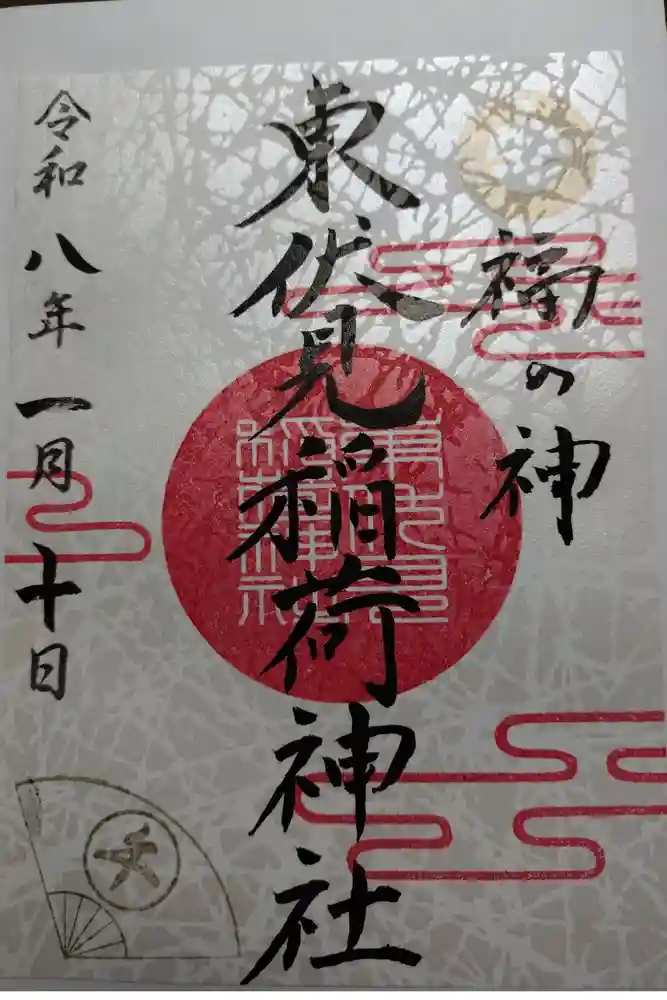 福の神
東伏見稲荷神社
令和八年一月十日